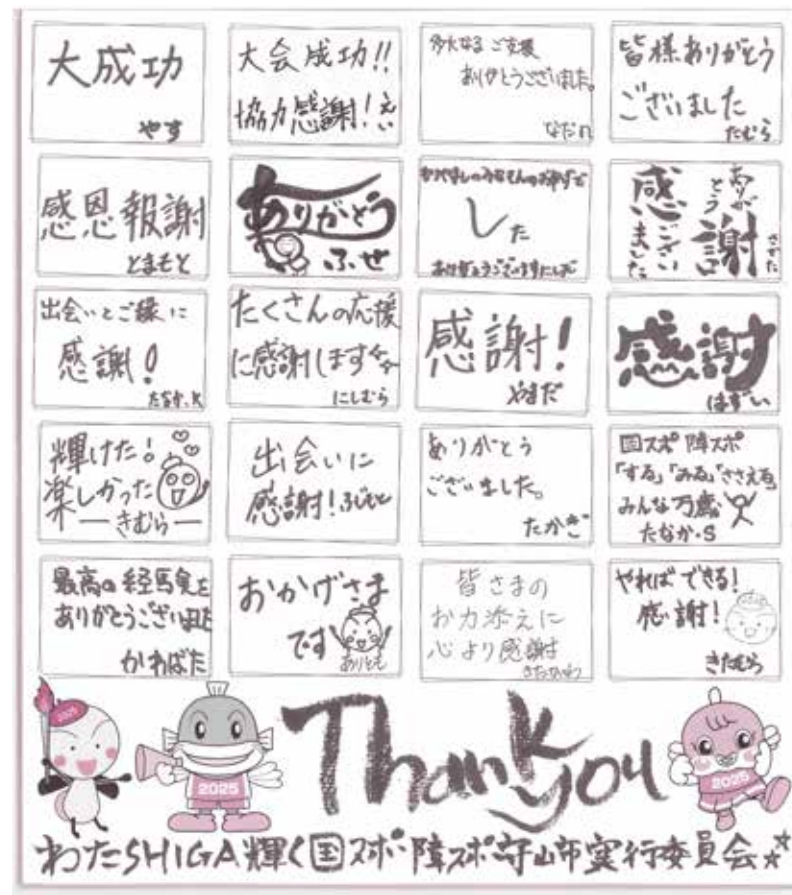 大成功
やす
大会成功!!
協力感謝!えい
多大なるご支援
ありがとうございました。
皆様ありがとう
ございました
たむら
感恩報謝
とまもと
ありがとう
ふせ
した
感謝
ありがとうございました
さかた
出会いとご縁に
感謝!
たなか.K
たくさんの応援
に感謝します
にしむら
感謝!
やまだ
感謝
輝けた!
楽しかった
―きむら―
出会いに
感謝!ふじもと
ありがとう
ございました。
たかぎ
国スポ 障スポ
「する」「みる」「ささえる」
みんな万歳
たなか・S
最高の経験を
ありがとうございました
かわばた
おかげさま
です
ありとも
皆さまの
お力添えに
心より感謝
きたがわ
やればできる!
感謝!
きたむら
2025
2025
2025
Thank you
わたSHIGA輝く国スポ・障スポ守山市実行委員会☆